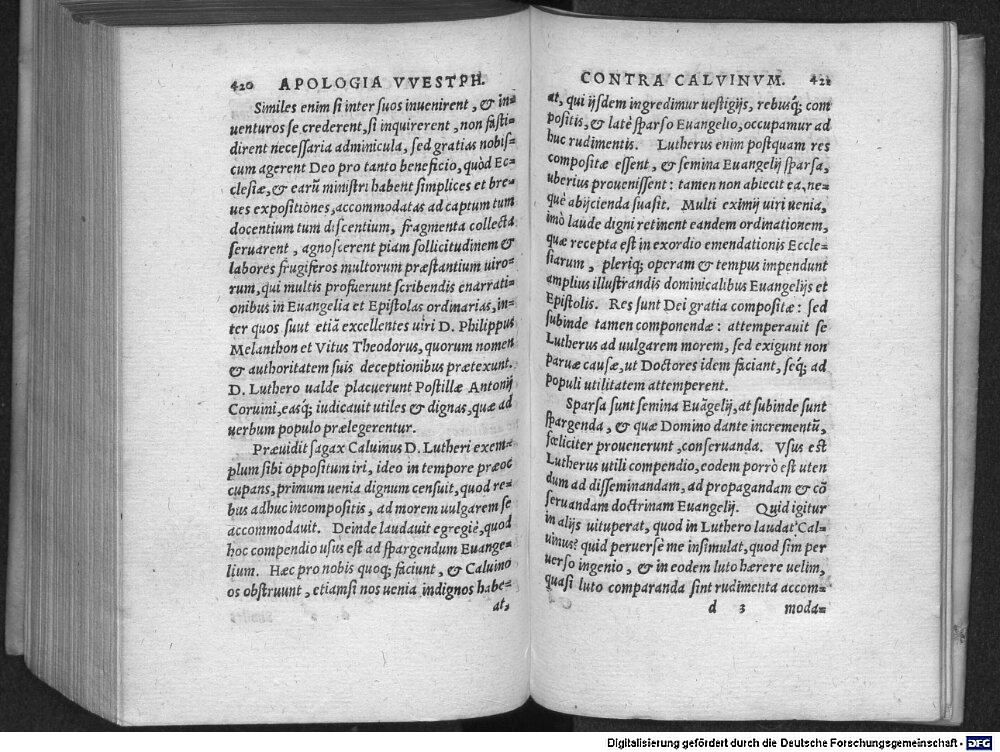 420 APOLOGIA VVESTPH.
Similes enim si inter suos inuenirent, & in=
uenturos se crederent, si inquirerent, non fasti=
dirent necessaria adminicula, sed gratias nobis=
cum agerent Deo pro tanto beneficio, quòd Ec=
clesiæ, & earũ ministri habent simplices et bre=
ues expositiones, accommodatas ad captum tum
docentium tum discentium, fragmenta collecta
seruarent, agnoscerent piam sollicitudinem &
labores frugiferos multorum præstantium uiro=
rum, qui multis profuerunt scribendis enarrati=
onibus in Euangelia et Epistolas ordinarias, in=
ter quos suut etiã excellentes uiri D. Philippus
Melanthon et Vitus Theodorus, quorum nomen
& authoritatem suis deceptionibus prætexunt.
D. Luthero ualde placuerunt Postillæ Antonij
Coruini, easq́; iudicauit utiles & dignas, quæ ad
uerbum populo prælegerentur.
Præuidit sagax Caluinus D. Lutheri exem=
plum sibi oppositum iri, ideo in tempore præoc
cupans, primum uenia dignum censuit, quod re=
bus adhuc incompositis, ad morem uulgarem se
accommodauit. Deinde laudauit egregiè, quod
hoc compendio usus est ad spargendum Euange=
lium. Hæc pro nobis quoq; faciunt, & Caluino
os obstruunt, etiamsi nos uenia indignos habe=
at,
CONTRA CALVINVM. 421
at, qui ijsdem ingredimur uestigijs, rebusq́; com
positis, & latè sparso Euangelio, occupamur ad
huc rudimentis. Lutherus enim postquam res
compositæ essent, & semina Euangelij sparsa,
uberius prouenissent: tamen non abiecit ea, ne=
què abijcienda suasit. Multi eximij uiri uenia,
imò laude digni retinent eandem ordinationem,
quæ recepta est in exordio emendationis Eccle=
siarum, pleriq; operam & tempus impendunt
amplius illustrandis dominicalibus Euangelijs et
Epistolis. Res sunt Dei gratia compositæ: sed
subinde tamen componendæ: attemperauit se
Lutherus ad uulgarem morem, sed exigunt non
paruæ causæ, ut Doctores idem faciant, seq́; ad
populi utilitatem attemperent.
Sparsa sunt semina Euãgelij, at subinde sunt
spargenda, & quæ Domino dante incrementũ,
fœliciter prouenerunt, conseruanda. Vsus est
Lutherus utili compendio, eodem porrò est uten
dum ad disseminandam, ad propagandam & cõ
seruandam doctrinam Euangelij. Quid igitur
in alijs uituperat, quod in Luthero laudat Cal=
uinus? quid peruersè me insimulat, quod sim per
uerso ingenio, & in eodem luto hærere uelim,
quasi luto comparanda sint rudimenta accom=
d 3 moda=
Digitalisierung gefördert durch die Deutsche Forschungsgemeinschaft - DFG